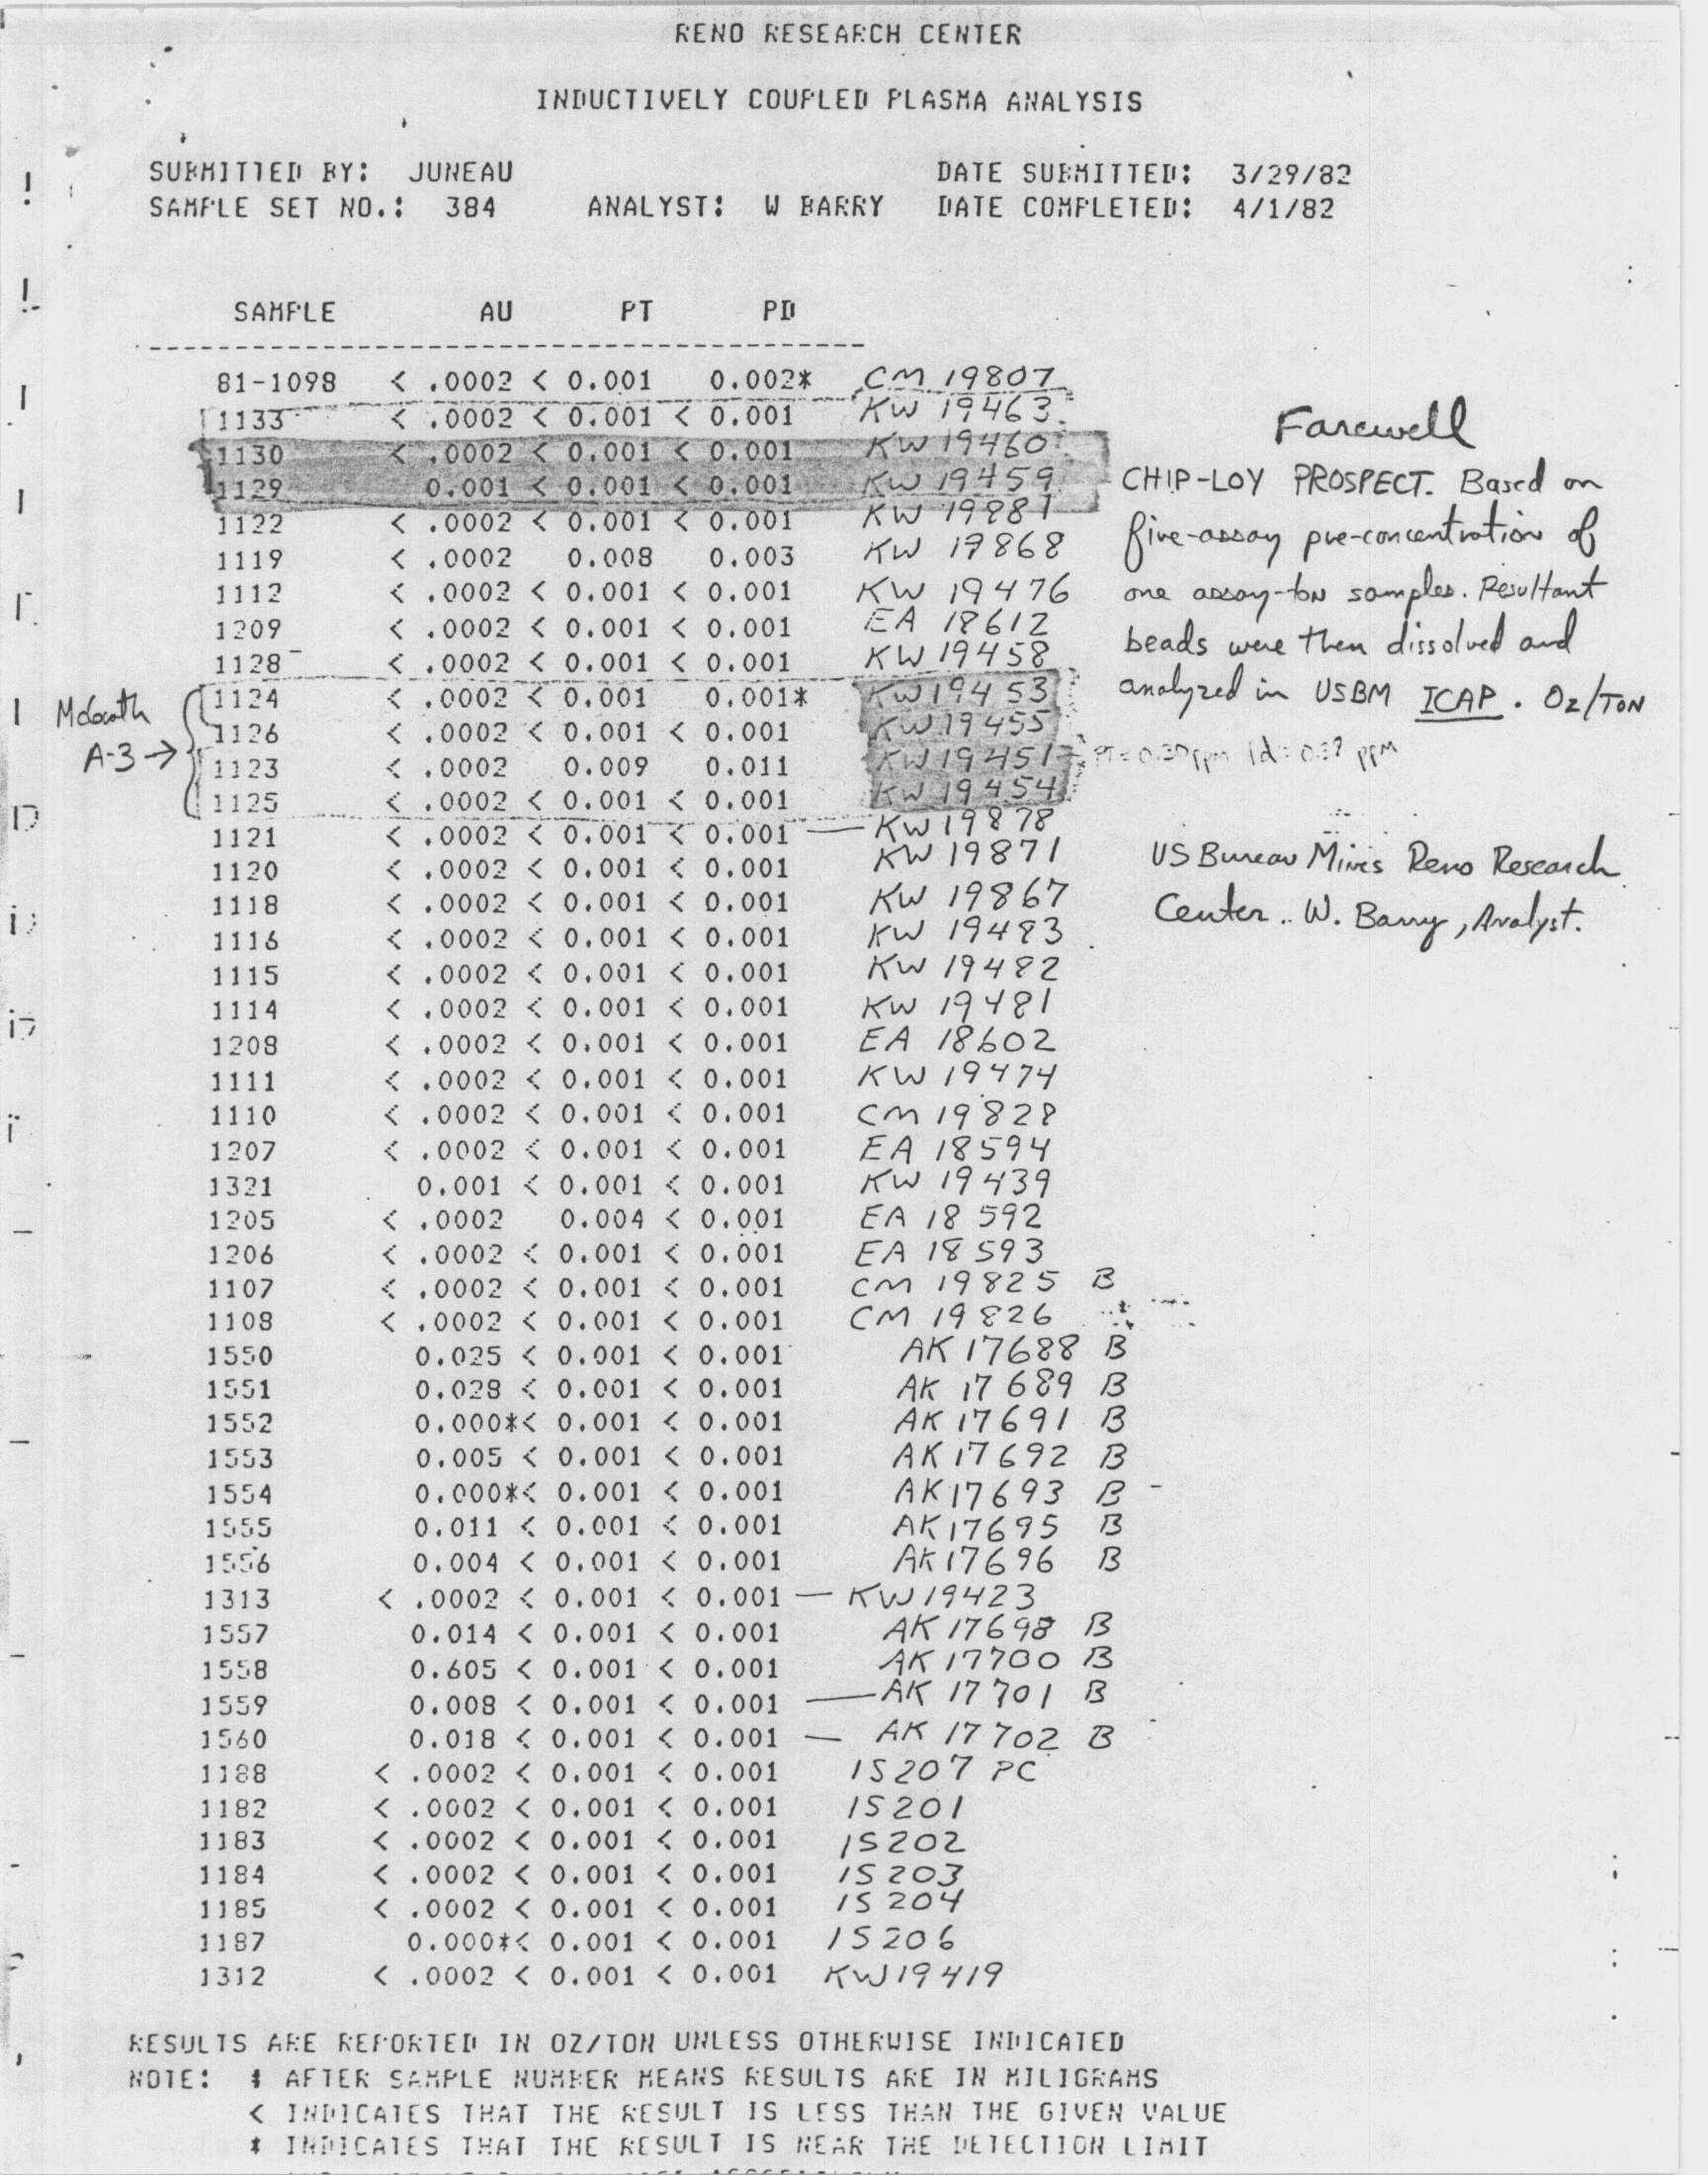 RENO RESEARCH CENTER
INDUCTIVELY COUPLED PLASMA ANALYSIS
SUBMITTED BY: JUNEAU DATE SUBMITTED: 3/29/82
SAMPLE SET NO.: 384 ANALYST: W BARRY DATE COMPLETED: 4/1/82
SAMPLE AU PT PD
81-1098 < .0002 < 0.001 0.002* CM 19807
1133 < .0002 < 0.001 < 0.001 KW 19463
1130 < .0002 < 0.001 < 0.001 KW 19460
1129 0.001 < 0.001 < 0.001 KW 19459
1122 < .0002 < 0.001 < 0.001 KW 19881
1119 < .0002 0.008 0.003 KW 19868
1112 < .0002 < 0.001 < 0.001 KW 19476
1209 < .0002 < 0.001 < 0.001 EA 18612
1128 < .0002 < 0.001 < 0.001 KW 19458
1124 < .0002 < 0.001 0.001* KW 19453
1126 < .0002 < 0.001 < 0.001 KW 19455
1123 < .0002 0.009 0.011 KW 19451
1125 < .0002 < 0.001 < 0.001 KW 19454
1121 < .0002 < 0.001 < 0.001 — KW 19878
1120 < .0002 < 0.001 < 0.001 KW 19871
1118 < .0002 < 0.001 < 0.001 KW 19867
1116 < .0002 < 0.001 < 0.001 KW 19483
1115 < .0002 < 0.001 < 0.001 KW 19482
1114 < .0002 < 0.001 < 0.001 KW 19481
1208 < .0002 < 0.001 < 0.001 EA 18602
1111 < .0002 < 0.001 < 0.001 KW 19474
1110 < .0002 < 0.001 < 0.001 CM 19828
1207 < .0002 < 0.001 < 0.001 EA 18594
1321 0.001 < 0.001 < 0.001 KW 19439
1205 < .0002 0.004 < 0.001 EA 18592
1206 < .0002 < 0.001 < 0.001 EA 18593
1107 < .0002 < 0.001 < 0.001 CM 19825 B
1108 < .0002 < 0.001 < 0.001 CM 19826
1550 0.025 < 0.001 < 0.001 AK 17688 B
1551 0.028 < 0.001 < 0.001 AK 17689 B
1552 0.000*< 0.001 < 0.001 AK 17691 B
1553 0.005 < 0.001 < 0.001 AK 17692 B
1554 0.000*< 0.001 < 0.001 AK 17693 B
1555 0.011 < 0.001 < 0.001 AK 17695 B
1556 0.004 < 0.001 < 0.001 AK 17696 B
1313 < .0002 < 0.001 < 0.001 — KW 19423
1557 0.014 < 0.001 < 0.001 AK 17698 B
1558 0.605 < 0.001 < 0.001 AK 17700 B
1559 0.008 < 0.001 < 0.001 — AK 17701 B
1560 0.018 < 0.001 < 0.001 — AK 17702 B
1188 < .0002 < 0.001 < 0.001 IS 207 PC
1182 < .0002 < 0.001 < 0.001 IS 201
1183 < .0002 < 0.001 < 0.001 IS 202
1184 < .0002 < 0.001 < 0.001 IS 203
1185 < .0002 < 0.001 < 0.001 IS 204
1187 0.000*< 0.001 < 0.001 IS 206
1312 < .0002 < 0.001 < 0.001 KW 19419
McGrath
A-3 →
Farewell
CHIP-LOY PROSPECT. Based on
fire-assay pre-concentration of
one assay-ton samples. Resultant
beads were then dissolved and
analyzed in USBM ICAP. Oz/TON
US Bureau Mines Reno Research
Center.. W. Barry, Analyst.
RESULTS ARE REPORTED IN OZ/TON UNLESS OTHERWISE INDICATED
NOTE: # AFTER SAMPLE NUMBER MEANS RESULTS ARE IN MILIGRAMS
< INDICATES THAT THE RESULT IS LESS THAN THE GIVEN VALUE
* INDICATES THAT THE RESULT IS NEAR THE DETECTION LIMIT